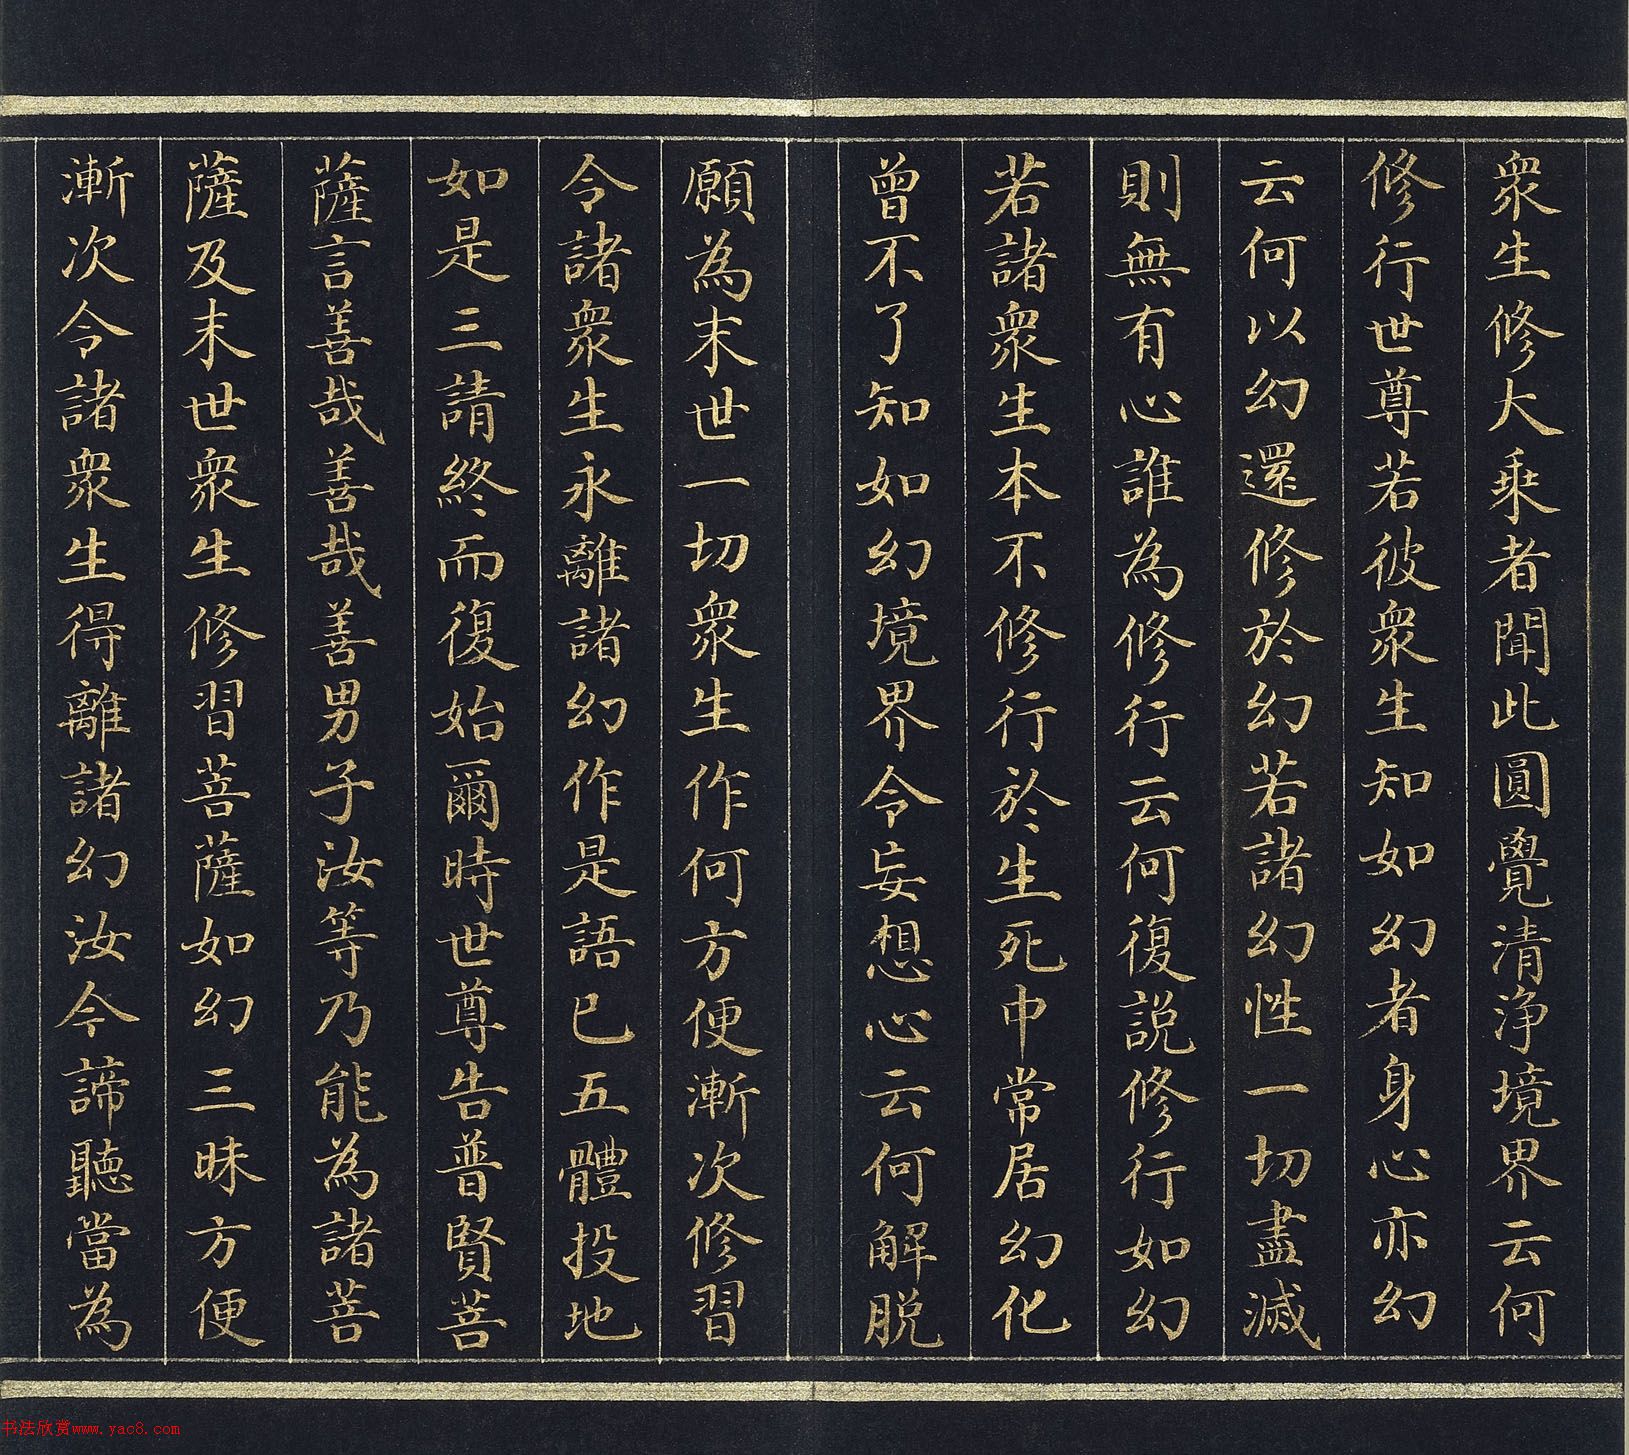 眾生修大乘者聞此圓覺清淨境界云何
修行世尊若彼眾生知如幻者身心亦幻
云何以幻還修於幻若諸幻性一切盡滅
則無有心誰為修行云何復說修行如幻
若諸眾生本不修行於生死中常居幻化
曾不了知如幻境界令妄想心云何解脫
願為末世一切眾生作何方便漸次修習
令諸眾生永離諸幻作是語已五體投地
如是三請終而復始爾時世尊告普賢菩
薩言善哉善哉善男子汝等乃能為諸菩
薩及末世眾生修習菩薩如幻三昧方便
漸次令諸眾生得離諸幻汝今諦聽當為
书法欣赏www.yac8.com